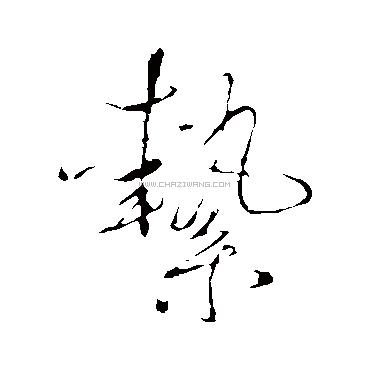 縶
WWW.CHAZIWANG.COM